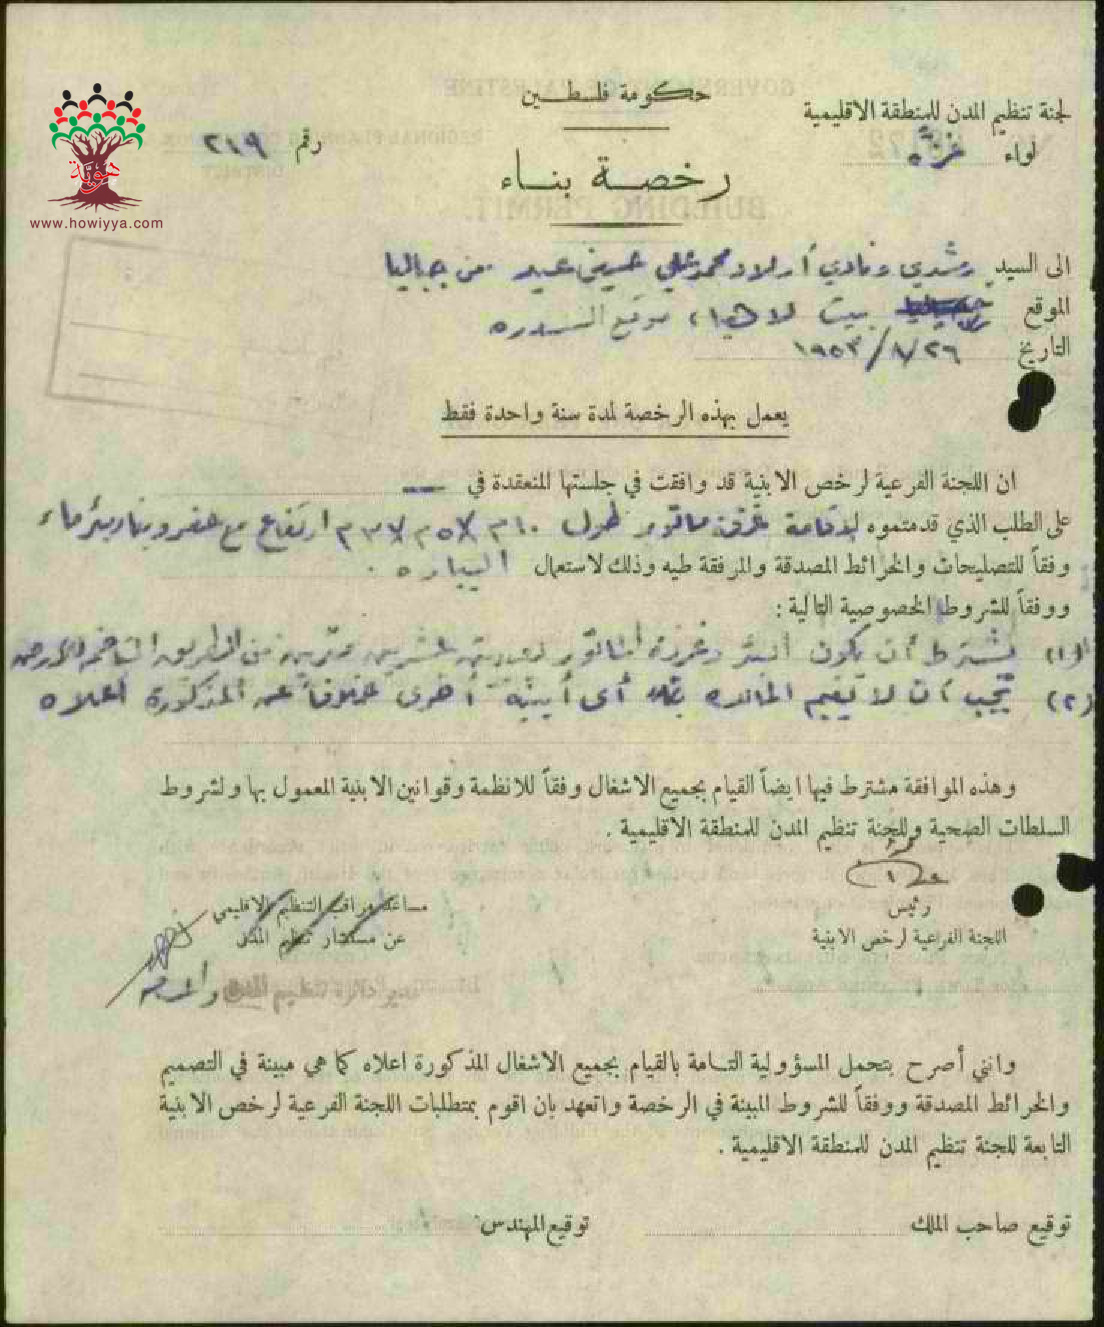 حكومة فلسطين
لجنة تنظيم المدن للمنطقة الاقليمية
لواء غزة
رقم ٢١٩
هوية
www.howiyya.com
رخصة بناء
الى السيد رشدي ونادي أولاد محمد علي حسين عيد من جباليا
الموقع بيت لاهيا، موقع السدره
التاريخ ٢٦/٨/١٩٥٣
يعمل بهذه الرخصة لمدة سنة واحدة فقط
ان اللجنة الفرعية لرخص الابنية قد وافقت في جلستها المنعقدة في —
على الطلب الذي قدمتموه لاقامة غرفة ماتور طول ارتفاع مع حفر وبناء بئر ماء
وفقاً للتصليحات والخرائط المصدقة والمرفقة طيه وذلك لاستعمال البياره .
ووفقاً للشروط الخصوصية التالية :
(١) يشترط أن يكون البئر وغرفة الماتور عشرين مترين من الطريق
(٢) يجب أن لا تقيم أى أبنية أخرى خلافاً عن المذكورة أعلاه
وهذه الموافقة مشترط فيها ايضاً القيام بجميع الاشغال وفقاً للانظمة وقوانين الابنية المعمول بها ولشروط
السلطات الصحية وللجنة تنظيم المدن للمنطقة الاقليمية .
رئيس
اللجنة الفرعية لرخص الابنية
مساعد مراقب التنظيم الاقليمي
عن مستشار تنظيم المدن
مدير دائرة تنظيم المدن
وانني أصرح بتحمل المسؤولية التامة بالقيام بجميع الاشغال المذكورة اعلاه كما هي مبينة في التصميم
والخرائط المصدقة ووفقاً للشروط المبينة في الرخصة واتعهد بان اقوم بمتطلبات اللجنة الفرعية لرخص الابنية
التابعة للجنة تنظيم المدن للمنطقة الاقليمية .
توقيع صاحب الملك
توقيع المهندس